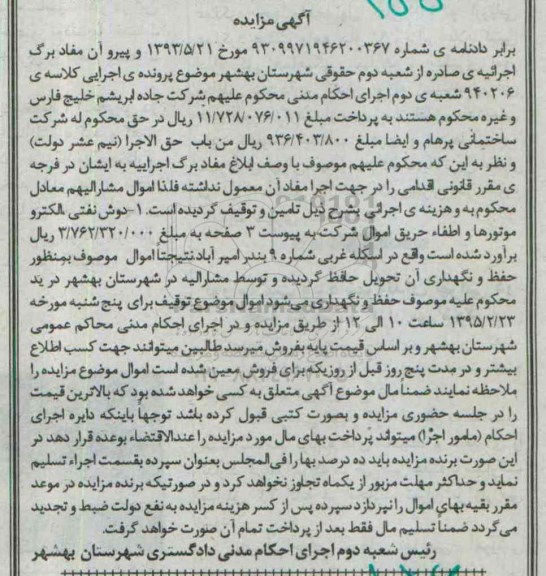 آگهی مزایده
برابر دادنامه ی شماره ۹۳۰۹۹۷۱۹۴۶۲۰۰۳۶۷ مورخ ۱۳۹۳/۵/۲۱ و پیرو آن مفاد برگ
اجرائیه ی صادره از شعبه دوم حقوقی شهرستان بهشهر موضوع پرونده ی اجرایی کلاسه ی
۹۴۰۲۰۶ شعبه ی دوم اجرای احکام مدنی محکوم علیهم شرکت جاده ابریشم خلیج فارس
و غیره محکوم هستند به پرداخت مبلغ ۱۱/۷۲۸/۰۷۶/۰۱۱ ریال در حق محکوم له شرکت
ساختمانی پرهام و ایضا مبلغ ۹۳۶/۴۰۳/۸۰۰ ریال من باب حق الاجرا (نیم عشر دولت)
و نظر به این که محکوم علیهم موصوف با وصف ابلاغ مفاد برگ اجراییه به ایشان در فرجه
ی مقرر قانونی اقدامی را در جهت اجرا مفاد آن معمول نداشته فلذا اموال مشارالیهم معادل
محکوم به و هزینه ی اجرائی بشرح ذیل تامین و توقیف گردیده است. ۱-دوش نفتی ،الکترو
موتورها و اطفاء حریق اموال شرکت به پیوست ۳ صفحه به مبلغ ۳/۷۶۲/۳۲۰/۰۰۰ ریال
برآورد شده است واقع در اسکله غربی شماره ۹ بندر امیر آباد نتیجتا اموال موصوف بمنظور
حفظ و نگهداری آن تحویل حافظ گردیده و توسط مشارالیه در شهرستان بهشهر در ید
محکوم علیه موصوف حفظ و نگهداری می شود اموال موضوع توقیف برای پنج شنبه مورخه
۱۳۹۵/۲/۲۳ ساعت ۱۰ الی ۱۲ از طریق مزایده و در اجرای احکام مدنی محاکم عمومی
شهرستان بهشهر و بر اساس قیمت پایه بفروش میرسد طالبین میتوانند جهت کسب اطلاع
بیشتر و در مدت پنج روز قبل از روزیکه برای فروش معین شده است اموال موضوع مزایده را
ملاحظه نمایند ضمناً مال موضوع آگهی متعلق به کسی خواهد شد بود که بالاترین قیمت
را در جلسه حضوری مزایده و بصورت کتبی قبول کرده باشد توجها باینکه دایره اجرای
احکام (مامور اجرا) میتواند پرداخت بهای مال مورد مزایده را عندالاقتضاء بوعده قرار دهد در
این صورت برنده مزایده باید ده درصد بها را فی المجلس بعنوان سپرده بقسمت اجراء تسلیم
نماید و حداکثر مهلت مزبور از یکماه تجاوز نخواهد کرد و در صورتیکه برنده مزایده در موعد
مقرر بقیه بهای اموال را نپردازد سپرده پس از کسر هزینه مزایده به نفع دولت ضبط و تجدید
می گردد ضمناً تسلیم مال فقط بعد از پرداخت تمام آن صورت خواهد گرفت.
رئیس شعبه دوم اجرای احکام مدنی دادگستری شهرستان بهشهر